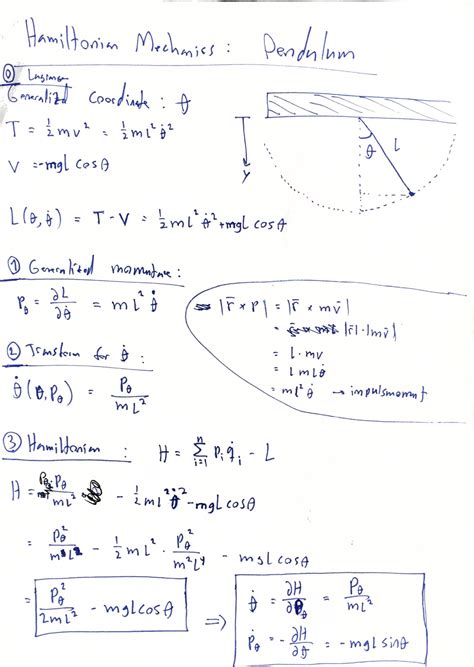 Hamiltonian Mechanics : Pendulum
⓪ Lagrange
Generalized coordinate : θ
T = ½ m v² = ½ m l² θ̇²
V = -mgl cos θ
θ
L
y
L(θ, θ̇) = T - V = ½ m l² θ̇² + mgl cos θ
① Generalized momentum :
P_θ = ∂L/∂θ̇ = m l² θ̇
|r̄ × p| = |r̄ × m v̄|
= |r̄| · |m v̄|
= l · m v
= l m l θ̇
= m l² θ̇ → impulsmoment
② Transform for θ̇ :
θ̇(θ, P_θ) = P_θ / m L²
③ Hamiltonian : H = Σ_{i=1}^{n} p_i q̇_i - L
H = P_θ · P_θ / m L² - ½ m l² θ̇² - mgl cos θ
= P_θ² / m L² - ½ m L² · P_θ² / m² L⁴ - mgl cos θ
= P_θ² / 2 m L² - mgl cos θ
⇒ θ̇ = ∂H/∂P_θ = P_θ / m L²
Ṗ_θ = -∂H/∂θ = -mgl sin θ